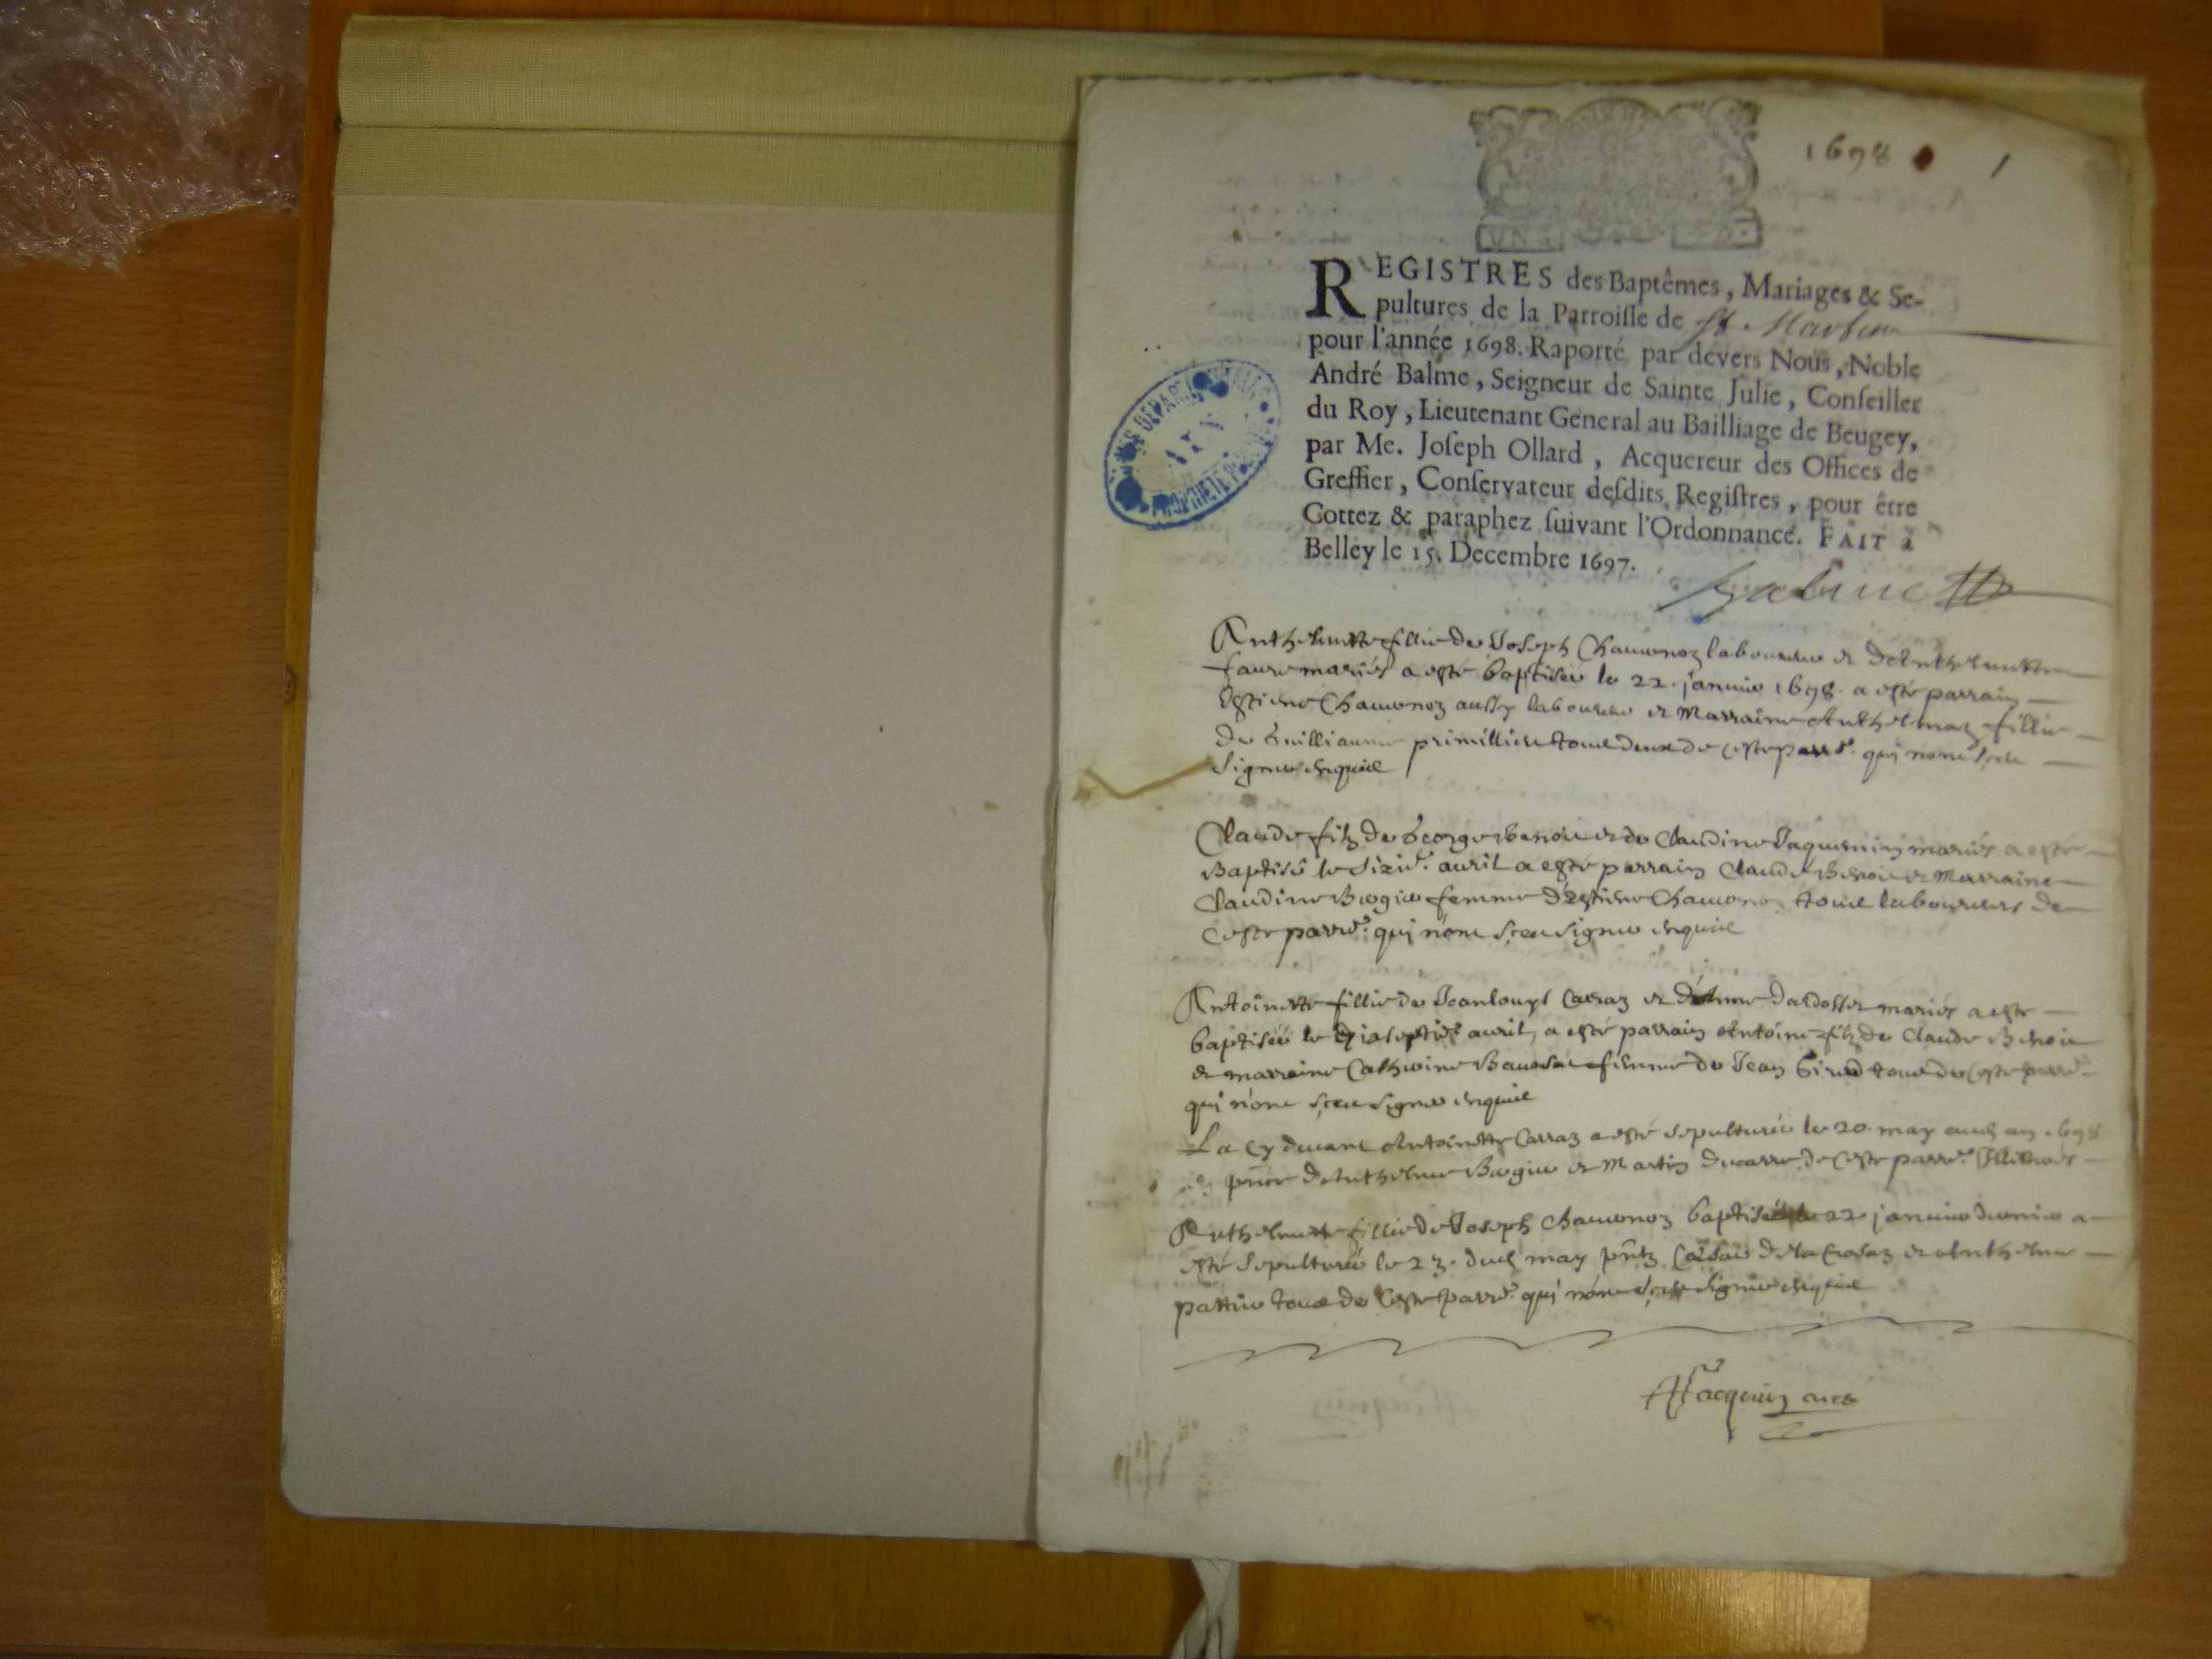 1698 1
REGISTRES des Baptêmes, Mariages & Se-
pultures de la Parroisse de St. Martin
pour l'année 1698. Raporté par devers Nous, Noble
André Balme, Seigneur de Sainte Julie, Conseiller
du Roy, Lieutenant General au Bailliage de Beugey,
par Me. Joseph Ollard, Acquereur des Offices de
Greffier, Conservateur desdits Registres, pour être
Cottez & paraphez suivant l'Ordonnance. FAIT à
Belley le 15. Decembre 1697.
Anthelmette fillie de Joseph Chauvonoz laboureur et d'Anthelmette
faure mariés a esté baptisée le 22. janvier 1698. a esté parrain
Estiene Chauvonoz aussy laboureur et Marraine Anthelmaz fillie
de Guilliaume primillieu tous deux de ceste parr. qui n'ont sceu
signer enquis
Claude filz de George Benoit et de Claudine Jaquemin mariés a esté
Baptisé le sixie. avril a esté parrain Claude Benoit et Marraine
Claudine Bergier femme d'Estiene Chauvonoz tous laboureurs de
ceste parr. qui n'ont sceu signer enquis
Antoinette fillie de Jean louys Carraz et mariés a esté
baptisée le dixseptie. avril, a esté parrain Antoine filz de Claude Benoit
et marraine Catherine femme de Jean tous de ceste parr.
qui n'ont sceu signer enquis
La cy devant Antoinette Carraz a esté sepulturée le 20. may aud. an 1698
Anthelme Bergier et Martin de ceste parr. Illitterés
Anthelmette fillie de Joseph Chauvonoz baptisée le 22 janvier dernier a
esté sepulturée le 23. dud. may pntz et Anthelme
tous de ceste parr. qui n'ont sceu signer enquis
Jacquin curé